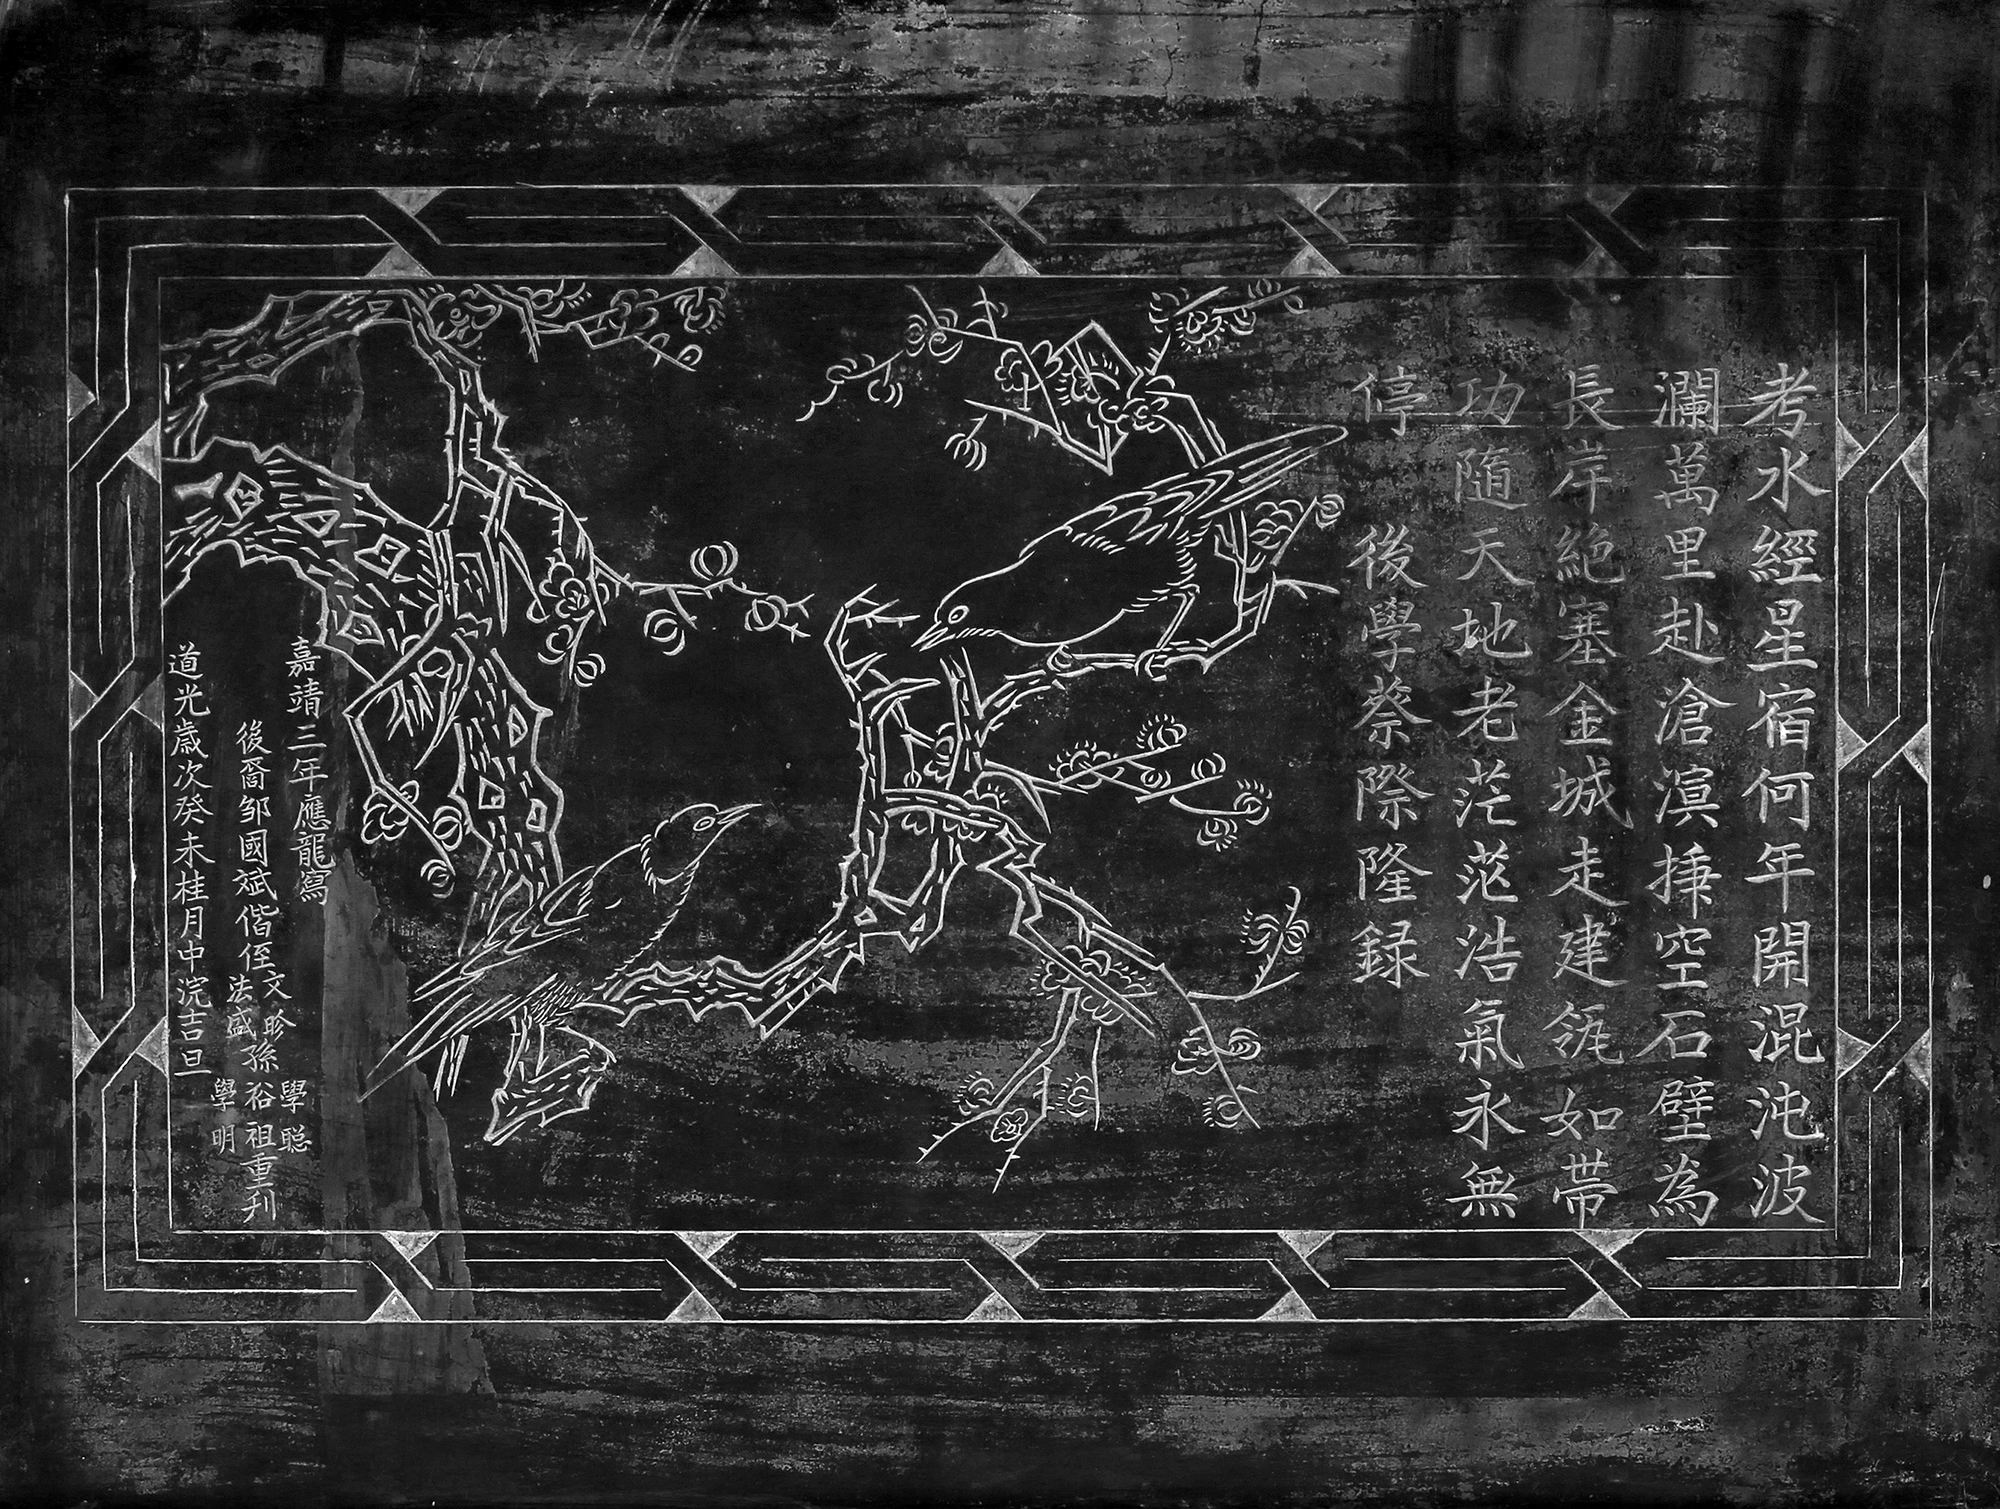 考水經星宿何年開混沌波
瀾萬里赴滄溟捶空石壁為
長岸絶塞金城走建瓴如帶
功隨天地老茫茫浩氣永無
停　後學蔡際隆録
嘉靖三年應龍寫
後裔邹國斌偕侄文珍法盛孫裕祖學聰學明重刋
道光歲次癸未桂月中浣吉旦